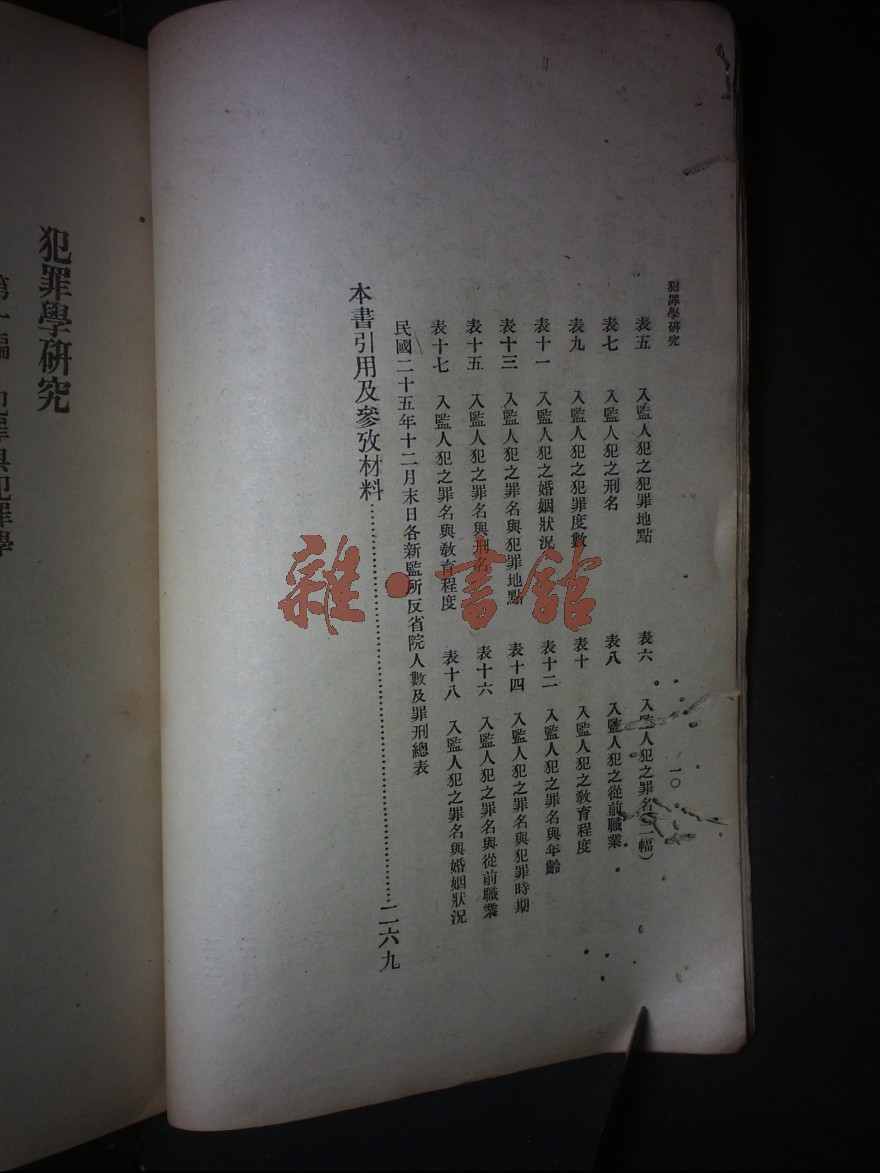 犯罪學硏究
一〇
表五 入監人犯之犯罪地點
表六 入監人犯之罪名（二幅）
表七 入監人犯之刑名
表八 入監人犯之從前職業
表九 入監人犯之犯罪度數
表十 入監人犯之敎育程度
表十一 入監人犯之婚姻狀況
表十二 入監人犯之罪名與年齡
表十三 入監人犯之罪名與犯罪地點
表十四 入監人犯之罪名與犯罪時期
表十五 入監人犯之罪名與刑名
表十六 入監人犯之罪名與從前職業
表十七 入監人犯之罪名與敎育程度
表十八 入監人犯之罪名與婚姻狀況
民國二十五年十二月末日各新監所反省院人數及罪刑總表
本書引用及參攷材料……二六九
犯罪學硏究
第一編 犯罪與犯罪學
雜·書館